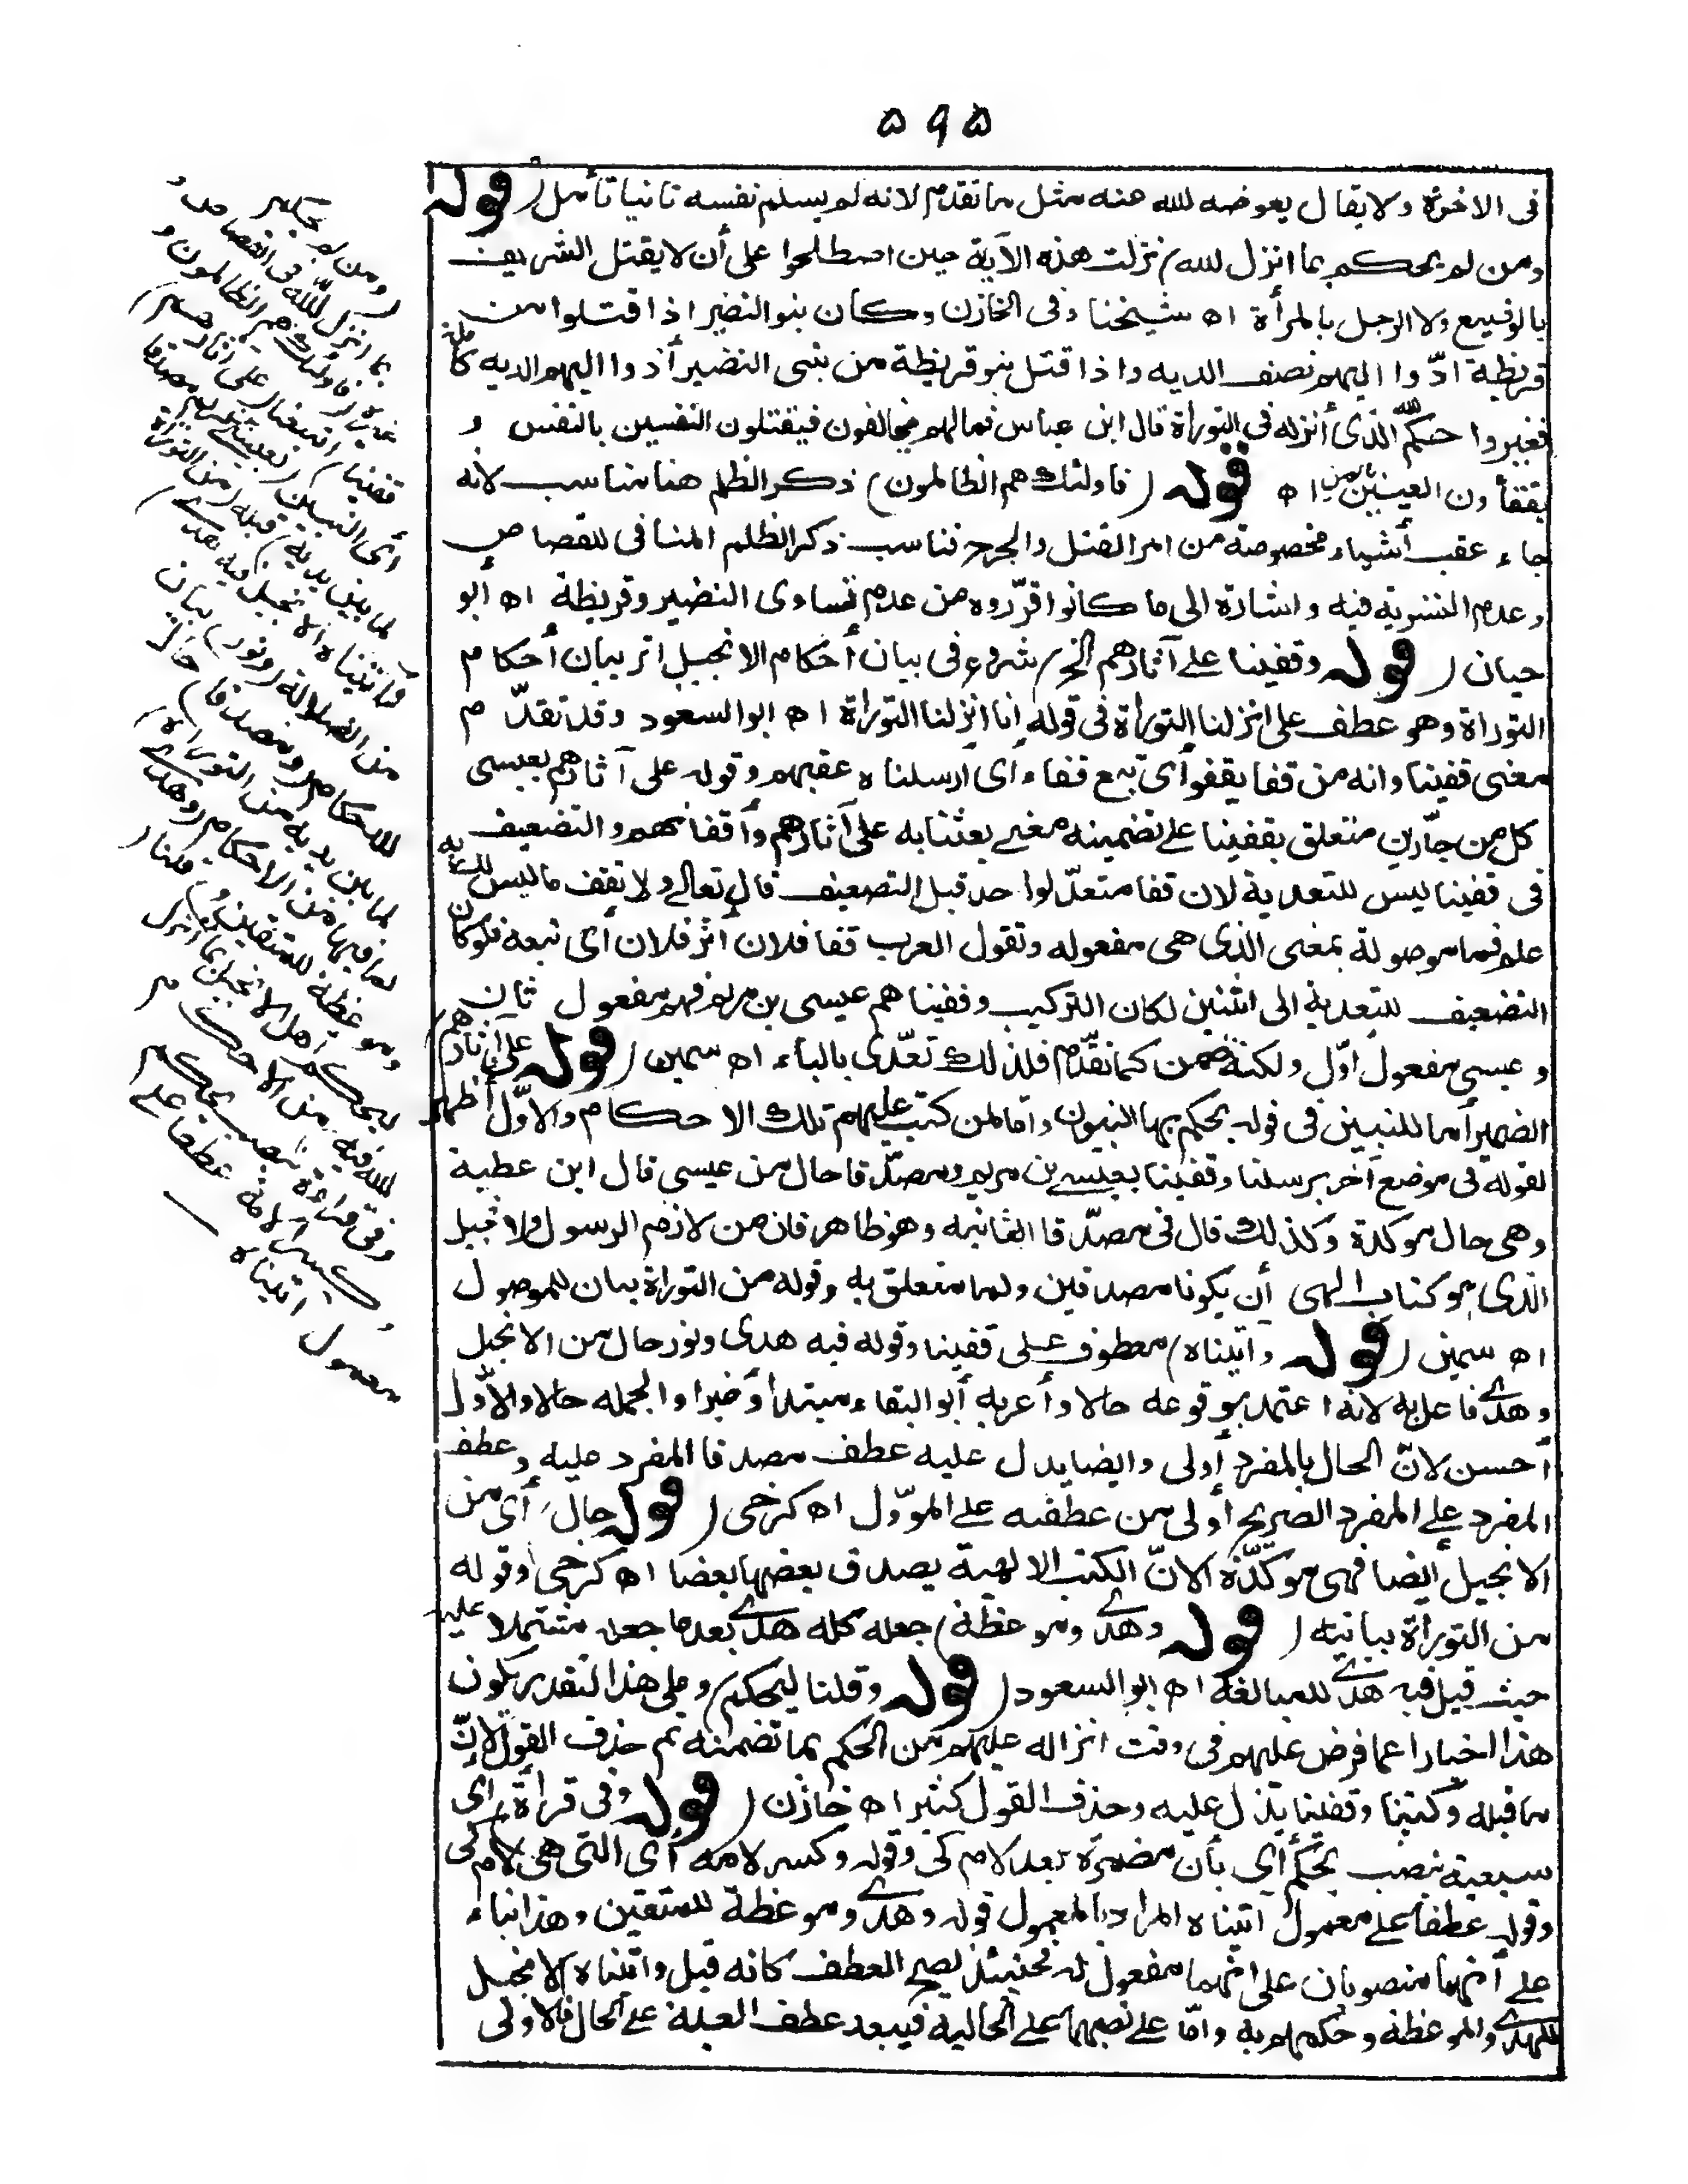 ٥٩٥
فى الاخرة ولا يقال يعوضه لله عنه مثل ما تقدم لانه لم يسلم نفسه ثانيا تأمل (قوله
ومن لم يحكم بما انزل لله) نزلت هذه الآية حين اصطلحوا على أن لا يقتل الشريف
بالوضيع ولا الرجل بالمرأة اه شيخنا وفى الخازن وكان بنو النضير اذا قتلوا من
قريظة ادّوا اليهم نصف الديه واذا قتل بنو قريظة من بنى النضير أدوا اليهم الديه كاملة
فغيروا حكم الله الذى أنزله فى التوراة قال ابن عباس فما لهم يخالفون فيقتلون النفسين بالنفس و
يفقأون العينين بالعين اه قوله (فاولئك هم الظالمون) ذكر الظلم هنا مناسب لانه
جاء عقب أشياء مخصوصة من امر القتل والجرح فناسب ذكر الظلم المنافى للقصاص
وعدم التسوية فيه واشارة الى ما كانوا قرّروه من عدم تساوى النضير وقريظة اه ابو
حيان (قوله وقفينا على آثارهم الخ) شروع فى بيان أحكام الانجيل اثر بيان أحكام
التوراة وهو عطف على انزلنا التوراة فى قوله إنا انزلنا التوراة اه ابو السعود وقد تقدّم
معنى قفينا وانه من قفا يقفو أى تبع قفاه أى ارسلناه عقبهم وقوله على آثارهم بعيسى
كل من جارين متعلق بقفينا على تضمينه معنى بعثنا به على آثارهم وأقفائهم والتضعيف
فى قفينا ليس للتعدية لان قفا متعدّ لواحد قبل التضعيف قال تعالى ولا تقف ما ليس لك به
علم فما موصولة بمعنى الذى هى مفعوله وتقول العرب قفا فلان اثر فلان أى تبعه فلو كان
التضعيف للتعدية الى اثنين لكان التركيب وقفيناهم عيسى بن مريم فهم مفعول ثان
وعيسى مفعول اوّل ولكنه ضمن كما تقدّم فلذلك تعدّى بالباء اه سمين (قوله على اثارهم)
الضمير أما للنبيين فى قوله يحكم بها النبيون واما لمن كتب عليهم تلك الاحكام والاوّل أظهر
لقوله فى موضع آخر برسلنا وقفينا بعيسى بن مريم ومصدّقا حال من عيسى قال ابن عطية
وهى حال موكدة وكذلك قال فى مصدّقا الثانيه وهو ظاهر فان من لازم الرسول والانجيل
الذى هو كتاب الهى أن يكونا مصدقين ولما متعلق به وقوله من التوراة بيان للموصول
اه سمين (قوله واتيناه) معطوف على قفينا وقوله فيه هدى ونور حال من الانجيل
وهدى فاعل به لانه اعتمد بوقوعه حالا وأعربه أبو البقاء مبتدا وخبرا والجمله حالا والاوّل
أحسن لانّ الحال بالمفرد أولى وايضا يدل عليه عطف مصدقا المفرد عليه وعطف
المفرد على المفرد الصريح أولى من عطفه على الموّول اه كرخى (قوله حال) أى من
الانجيل أيضا فهى موكدّة لانّ الكتب الالهية يصدق بعضها بعضا اه كرخى وقوله
من التوراة بيانيه (قوله وهدى وموعظة) جعله كله هدى بعد ما جعله مشتملا عليه
حيث قيل فيه هدى للمبالغة اه ابو السعود (قوله وقلنا ليحكم) وعلى هذا التقدير يكون
هذا اخبارا عما فرض عليهم فى وقت انزاله عليهم من الحكم بما تضمنه ثم حذف القول لانّ
ما قبله وكتبنا وقفينا يدل عليه وحذف القول كثير اه خازن (قوله وفى قراءة) اى
سبعية بنصب يحكم أى بأن مضمرة بعد لام كى وقوله وكسر لامه أى التى هى لام كى
وقوله عطفا على معمول اتيناه المراد بالمعمول قوله وهدى وموعظة للمتقين وهذا بناء
على أنهما منصوبان على انهما مفعول له فحينئذ يصح العطف كانه قيل واتيناه الانجيل
للهدى والموعظة وحكمهم به وامّا على نصبهما على الحالية فيبعد عطف العلة على الحال فالاولى
(ومن لم يحكم
بما انزل لله فى القصاص و
غيره (فاولئك هم الظالمون و
قفينا) اتبعنا (على اثارهم)
أى النبيين (بعيسى بن مريم مصدقا
لما بين يديه) قبله (من التوراة
واتيناه الانجيل فيه هدى)
من الضلالة (ونور) بيان
للاحكام (ومصدقا) حال
لما بين يديه من التوراة)
لما فيها من الاحكام (وهدى
وموعظة للمتقين و) قلنا (
ليحكم اهل الانجيل بما انزل
لله فيه) من الاحكام
وفى قراءة بنصب يحكم
وكسر لامه عطفا على
معمول اتيناه